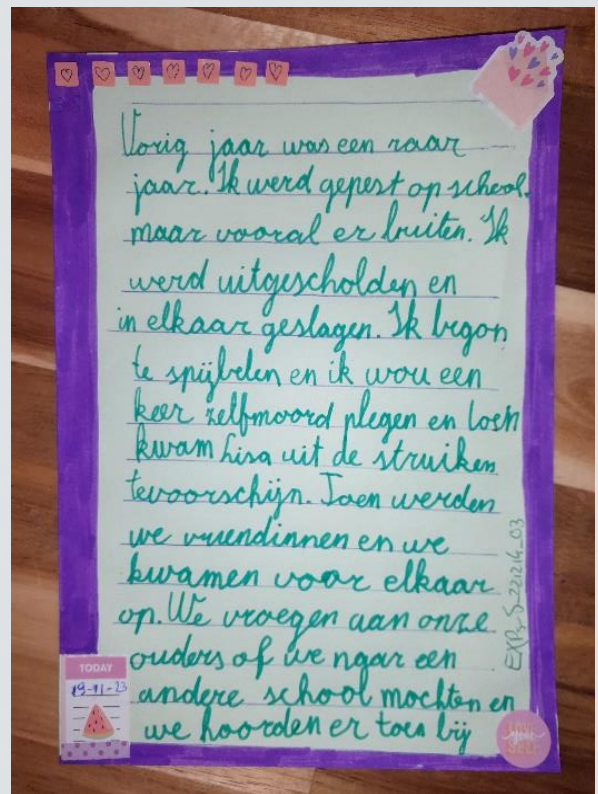 Vorig jaar was een raar
jaar. Ik werd gepest op school.
maar vooral er buiten. Ik
werd uitgescholden en
in elkaar geslagen. Ik begon
te spijbelen en ik wou een
keer zelfmoord plegen en toen
kwam Lisa uit de struiken
tevoorschijn. Toen werden
we vriendinnen en we
kwamen voor elkaar
op. We vroegen aan onze
ouders of we naar een
andere school mochten en
we hoorden er toen bij
EXPs-S-221214_03
TODAY
19-11-23
LOVE
your
SELF